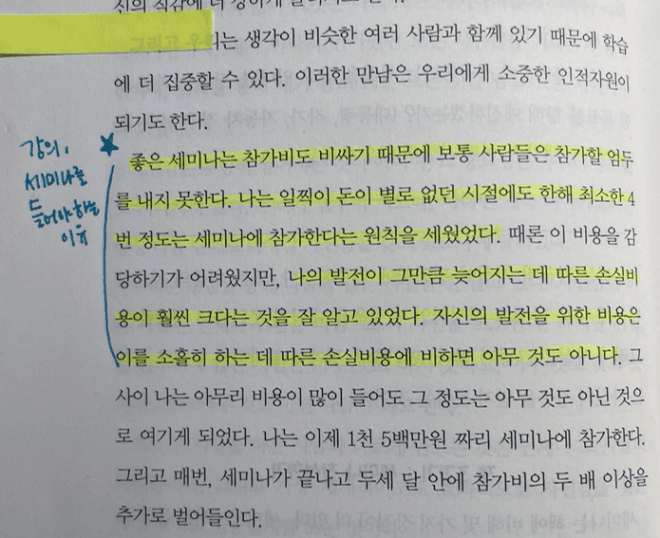 그리고 우리는 생각이 비슷한 여러 사람과 함께 있기 때문에 학습
에 더 집중할 수 있다. 이러한 만남은 우리에게 소중한 인적자원이
되기도 한다.
강의,
세미나를
들어야 하는
이유
좋은 세미나는 참가비도 비싸기 때문에 보통 사람들은 참가할 엄두
를 내지 못한다. 나는 일찍이 돈이 별로 없던 시절에도 한해 최소한 4
번 정도는 세미나에 참가한다는 원칙을 세웠었다. 때론 이 비용을 감
당하기가 어려웠지만, 나의 발전이 그만큼 늦어지는 데 따른 손실비
용이 훨씬 크다는 것을 잘 알고 있었다. 자신의 발전을 위한 비용은
이를 소홀히 하는 데 따른 손실비용에 비하면 아무 것도 아니다. 그
사이 나는 아무리 비용이 많이 들어도 그 정도는 아무 것도 아닌 것으
로 여기게 되었다. 나는 이제 1천 5백만원 짜리 세미나에 참가한다.
그리고 매번, 세미나가 끝나고 두세 달 안에 참가비의 두 배 이상을
추가로 벌어들인다.